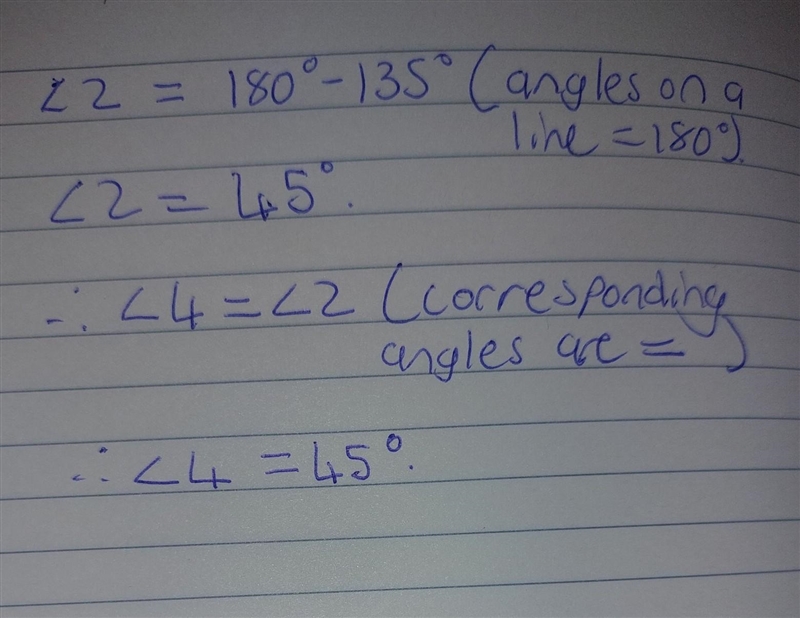 ∠2 = 180° - 135° (angles on a
line = 180°).
∠2 = 45°.
∴ ∠4 = ∠2 (corresponding
angles are = )
∴ ∠4 = 45°.